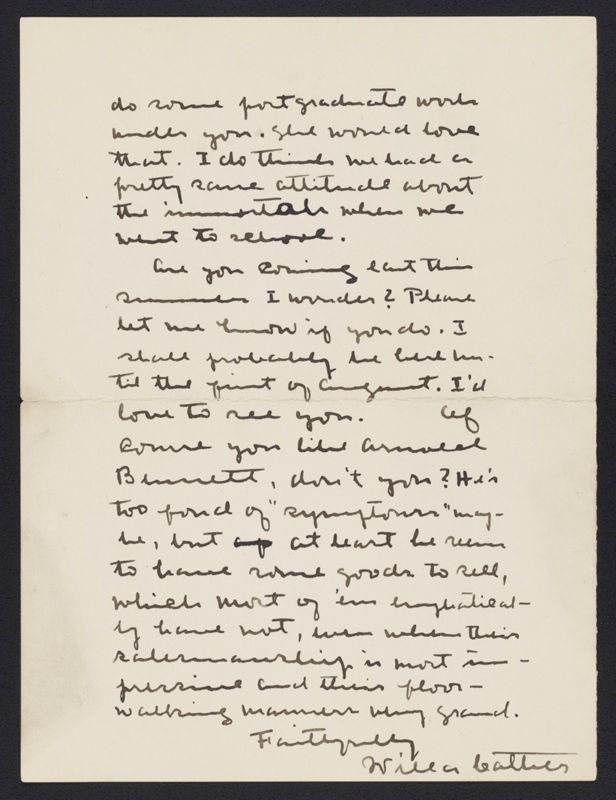 do some postgraduate work
under you. She would love
that. I do think we had a
pretty sane attitude about
the immortals when we
went to school.
Are you coming east this
summer I wonder? Please
let me know if you do. I
shall probably be here un-
til the first of August. I'd
love to see you. Of
course you like Arnold
Bennett, don't you? He's
too fond of "symptoms" may-
be, but at least he seems
to have some goods to sell,
which most of 'em emphatical-
ly have not, even when their
salesmanship is most im-
pressive and their floor-
walking manners very grand.
Faithfully
Willa Cather